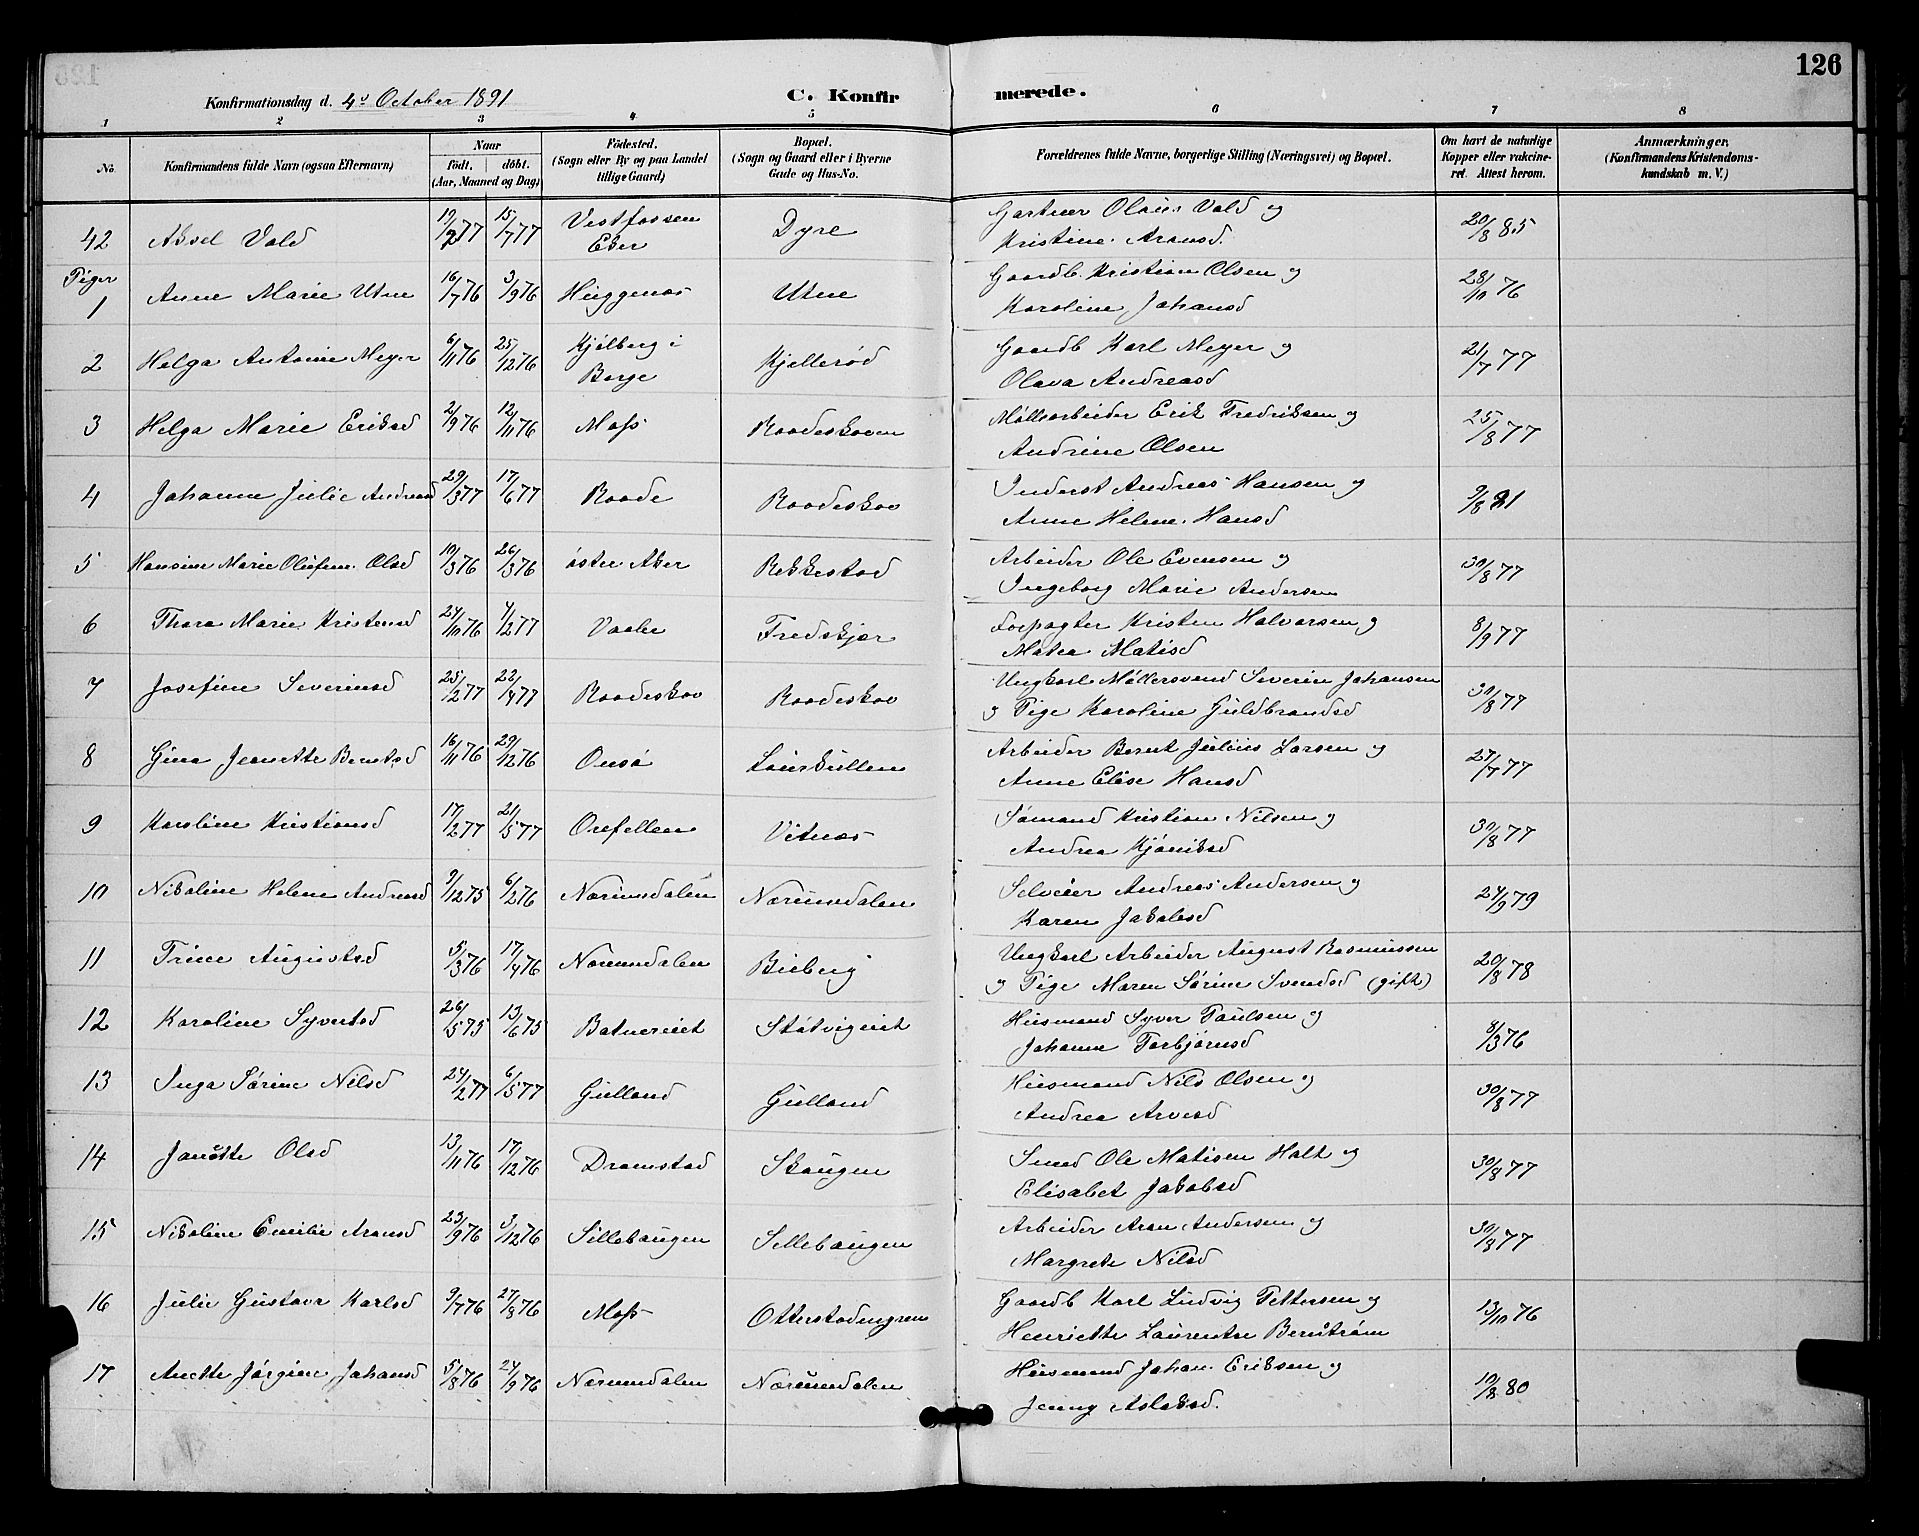 126
Konfirmationsdag d. 4de October 1891 C. Konfirmerede.
1 2 3 4 5 6 7 8
No Konfirmandens fulde Navn (ogsaa Efternavn) Naar født. døbt. (Aar, Maaned og Dag) Fødested. (Sogn eller By og paa Landet tillige Gaard) Bopæl. (Sogn og Gaard eller i Byerne Gade og Hus-No. Forældrenes fulde Navne, borgerlige Stilling (Næringsvei) og Bopæl. Om havt de naturlige Kopper eller vakcineret. Attest herom. Anmærkninger, (Konfirmandens Kristendomskundskab m. V.)
42 Aksel Vold 19/2 77 15/7 77 Vestfossen Eker Dyre Gartner Olaus Vold og Kristine Aronsd. 20/8 85
Piger
1 Anne Marie Utne 16/7 76 3/9 76 Huggenæs Utne Gaardb. Kristian Olsen og Karoline Johansd 28/10 76
2 Helga Antonie Meyer 6/11 76 25/12 76 Kjølberg i Borge Kjellerød Gaardb Karl Meyer og Olava Andreasd 21/7 77
3 Helga Marie Eriksd 2/9 76 12/11 76 Moss Raadeskoven Møllearbeider Erik Fredriksen og Andrine Olsen 25/8 77
4 Johanne Julie Andreasd 29/3 77 17/6 77 Raade Raadeskov Inderst Andreas Hansen og Anne Helene Hansd 9/8 81
5 Hansine Marie Olufine Olsd 10/3 76 26/3 76 Øster Aker Rekkestad Arbeider Ole Evensen og Ingeborg Marie Andersen 30/8 77
6 Thora Marie Kristensd 24/10 76 4/2 77 Vaaler Fredskjær Forpagter Kristen Halvorsen og Matea Matisd 8/9 77
7 Josefine Severinsd 25/2 77 22/4 77 Raadeskov Raadeskov Ungkarl Møllersvend Severin Johansen og Pige Karoline Guldbrandsd 31/8 77
8 Gina Jeanette Berntsd 16/11 76 29/12 76 Onsø Lauskullen Arbeider Bernt Julius Larsen og Anne Elise Hansd 27/7 77
9 Karoline Kristiansd 17/2 77 21/5 77 Orefellen Vitnæs Sømand Kristian Nilsen og Andrea Kjøniksd 30/8 77
10 Nikoline Helene Andreasd 9/12 75 6/2 76 Norumdalen Norumdalen Selveier Andreas Andersen og Karen Jakobsd 24/9 79
11 Trine Augustsd 5/3 76 17/4 76 Norumdalen Bieberg Ungkarl Arbeider August Rasmussen og Pige Maren Sørine Svendsd (gift) 20/8 78
12 Karoline Syvertsd 26/5 75 13/6 75 Batnereiet Støtvigeiet Husmand Syver Paulsen og Johanne Torbjørnsd 8/3 76
13 Inga Sørine Nilsd 24/2 77 6/5 77 Gulland Gulland Husmand Nils Olsen og Andrea Arvesd 30/8 77
14 Janette Olsd 13/11 76 17/12 76 Dramstad Skaugen Smed Ole Matisen Holt og Elisabet Jakobsd 30/8 77
15 Nikoline Emilie Aronsd 23/9 76 3/12 76 Sillebaugen Sillebaugen Arbeider Aron Andersen og Margrete Nilsd 30/8 77
16 Julie Gustava Karlsd 9/7 76 27/8 76 Moss Otterstadengren Gaardb Karl Ludvig Pettersen og Henriette Laurentse Bernstrøm 13/10 76
17 Anette Jørgine Johansd 5/8 76 24/9 76 Norumdalen Norumdalen Husmand Johan Eriksen og Jenny Aslaksd. 10/8 80